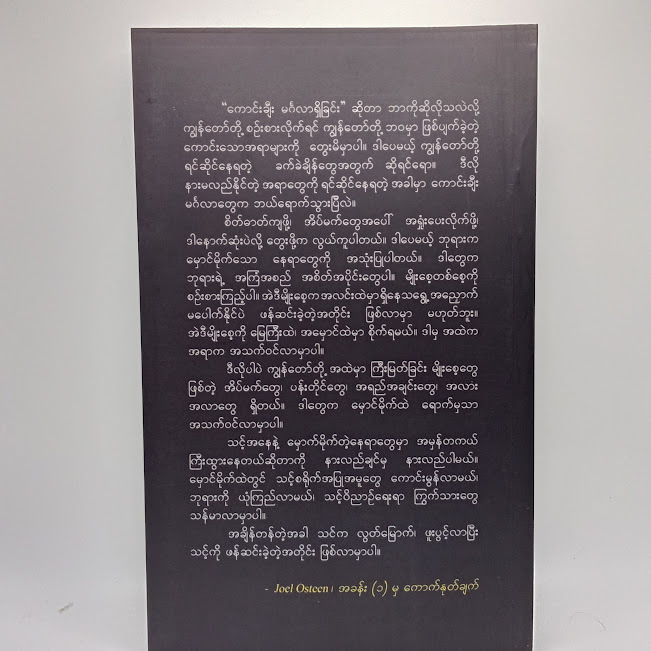 “ကောင်းချီး မင်္ဂလာရှိခြင်း” ဆိုတာ ဘာကိုဆိုလိုသလဲလို့
ကျွန်တော်တို့ စဉ်းစားလိုက်ရင် ကျွန်တော်တို့ ဘဝမှာ ဖြစ်ပျက်ခဲ့တဲ့
ကောင်းသောအရာများကို တွေးမိမှာပါ။ ဒါပေမယ့် ကျွန်တော်တို့
ရင်ဆိုင်နေရတဲ့ ခက်ခဲချိန်တွေအတွက် ဆိုရင်ရော။ ဒီလို
နားမလည်နိုင်တဲ့ အရာတွေကို ရင်ဆိုင်နေရတဲ့ အခါမှာ ကောင်းချီး
မင်္ဂလာတွေက ဘယ်ရောက်သွားပြီလဲ။
စိတ်ဓာတ်ကျဖို့၊ အိပ်မက်တွေအပေါ် အရှုံးပေးလိုက်ဖို့၊
ဒါနောက်ဆုံးပဲလို့ တွေးဖို့က လွယ်ကူပါတယ်။ ဒါပေမယ့် ဘုရားက
မှောင်မိုက်သော နေရာတွေကို အသုံးပြုပါတယ်။ ဒါတွေက
ဘုရားရဲ့ အကြံအစည် အစိတ်အပိုင်းတွေပါ။ မျိုးစေ့တစ်စေ့ကို
စဉ်းစားကြည့်ပါ။ အဲဒီမျိုးစေ့က အလင်းထဲမှာရှိနေသရွေ့ အညှောက်
မပေါက်နိုင်ပဲ ဖန်ဆင်းခဲ့တဲ့အတိုင်း ဖြစ်လာမှာ မဟုတ်ဘူး။
အဲဒီမျိုးစေ့ကို မြေကြီးထဲ၊ အမှောင်ထဲမှာ စိုက်ရမယ်။ ဒါမှ အထဲက
အရာက အသက်ဝင်လာမှာပါ။
ဒီလိုပါပဲ ကျွန်တော်တို့ အထဲမှာ ကြီးမြတ်ခြင်း မျိုးစေ့တွေ
ဖြစ်တဲ့ အိပ်မက်တွေ၊ ပန်းတိုင်တွေ၊ အရည်အချင်းတွေ၊ အလား
အလာတွေ ရှိတယ်။ ဒါတွေက မှောင်မိုက်ထဲ ရောက်မှသာ
အသက်ဝင်လာမှာပါ။
သင့်အနေနဲ့ မှောက်မိုက်တဲ့နေရာတွေမှာ အမှန်တကယ်
ကြီးထွားနေတယ်ဆိုတာကို နားလည်ချင်မှ နားလည်ပါမယ်။
မှောင်မိုက်ထဲတွင် သင့်စရိုက်အပြုအမူတွေ ကောင်းမွန်လာမယ်၊
ဘုရားကို ယုံကြည်လာမယ်၊ သင့်ဝိညာဉ်ရေးရာ ကြွက်သားတွေ
သန်မာလာမှာပါ။
အချိန်တန်တဲ့အခါ သင်က လွတ်မြောက်၊ ဖူးပွင့်လာပြီး
သင့်ကို ဖန်ဆင်းခဲ့တဲ့အတိုင်း ဖြစ်လာမှာပါ။
- Joel Osteen၊ အခန်း (၁) မှ ကောက်နုတ်ချက်